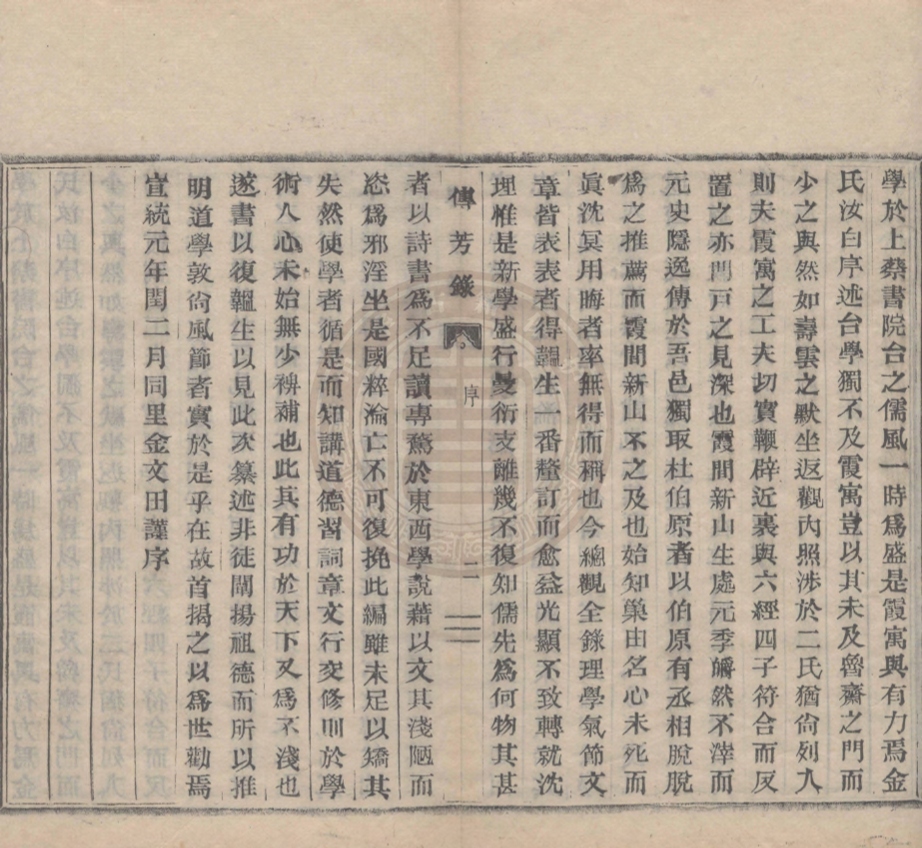 學於上蔡書院台之儒風一時爲盛是霞寓與有力焉金
氏汝白序述台學獨不及霞寓豈以其未及魯齋之門而
少之與然如壽雲之默坐返觀內照涉於二氏猶尙列入
則夫霞寓之工夫切實鞭辟近裏與六經四子符合而反
置之亦門戶之見深也霞間新山生處元季皭然不滓而
元史隱逸傳於吾邑獨取杜伯原者以伯原有丞相脫脫
爲之推薦而霞間新山不之及也始知巢由名心未死而
眞沈冥用晦者率無得而稱也今總觀全錄理學氣節文
章皆表表者得韞生一番釐訂而愈益光顯不致轉就沈
理惟是新學盛行曼衍支離幾不復知儒先爲何物其甚
傳芳錄 序 二
者以詩書爲不足讀專騖於東西學說藉以文其淺陋而
恣爲邪淫坐是國粹淪亡不可復挽此編雖未足以矯其
失然使學者循是而知講道德習詞章文行交修則於學
術人心未始無少裨補也此其有功於天下又爲不淺也
遂書以復韞生以見此次纂述非徒闡揚祖德而所以推
明道學敦尙風節者實於是乎在故首揭之以爲世勸焉
宣統元年閏二月同里金文田謹序